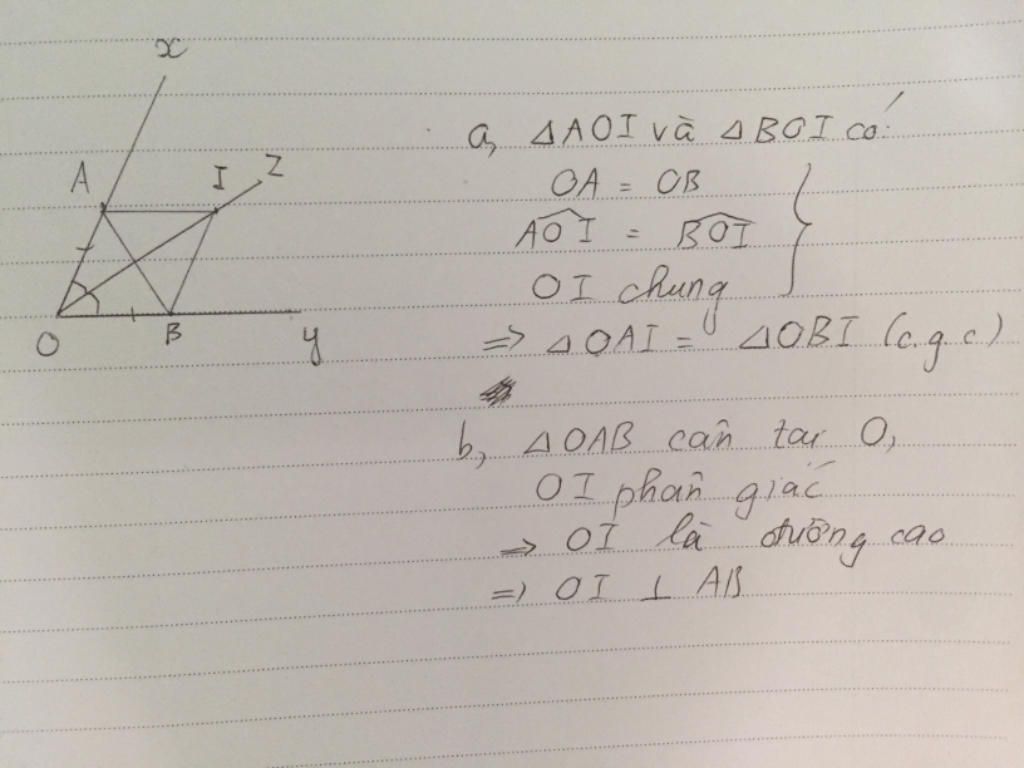 x
A
I
Z
O
B
y
a, △AOI và △BOI có:
OA = OB
AOI = BOI
OI chung
=> △OAI = △OBI (c.g.c)
b, △OAB cân tại O,
OI phân giác
=> OI là đường cao
=> OI ⊥ AB